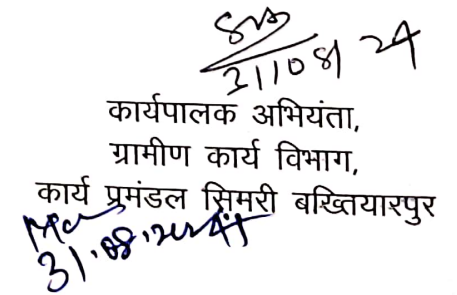 31108/24
कार्यपालक अभियंता,
ग्रामीण कार्य विभाग,
कार्य प्रमंडल सिमरी बख्तियारपुर
31.08.2024